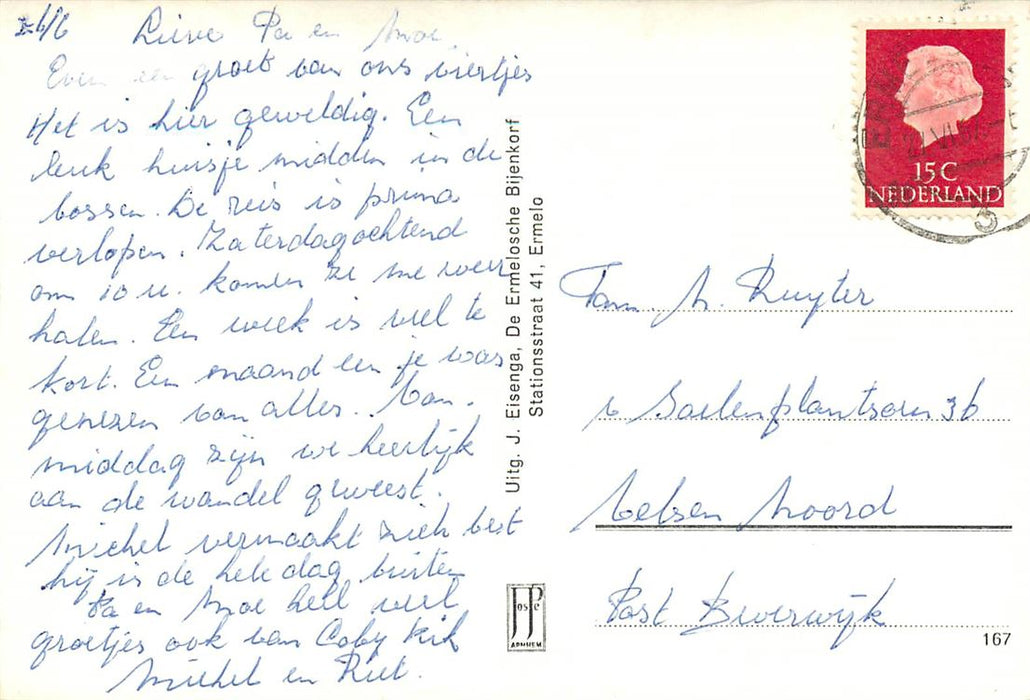 Lieve Pa en Moe.
Even een groet van ons viertjes
Het is hier geweldig. Een
leuk huisje midden in de
bossen. De reis is prima
verlopen. Zaterdagochtend
om 10 u. komen ze me weer
halen. Een week is veel te
kort. Een maand en je was
genezen van alles. Van-
middag zijn we heerlijk
aan de wandel geweest.
Michel vermaakt zich best
hij is de hele dag buiten
Pa en Moe heel veel
groetjes ook van Coby Rik
Michel en Riet.
Uitg. J. Eisenga, De Ermelosche Bijenkorf
Stationsstraat 41, Ermelo
JP
osse
ARNHEM
15C
NEDERLAND
Fam Ruyter
36
Velsen Noord
Post Beverwijk
167